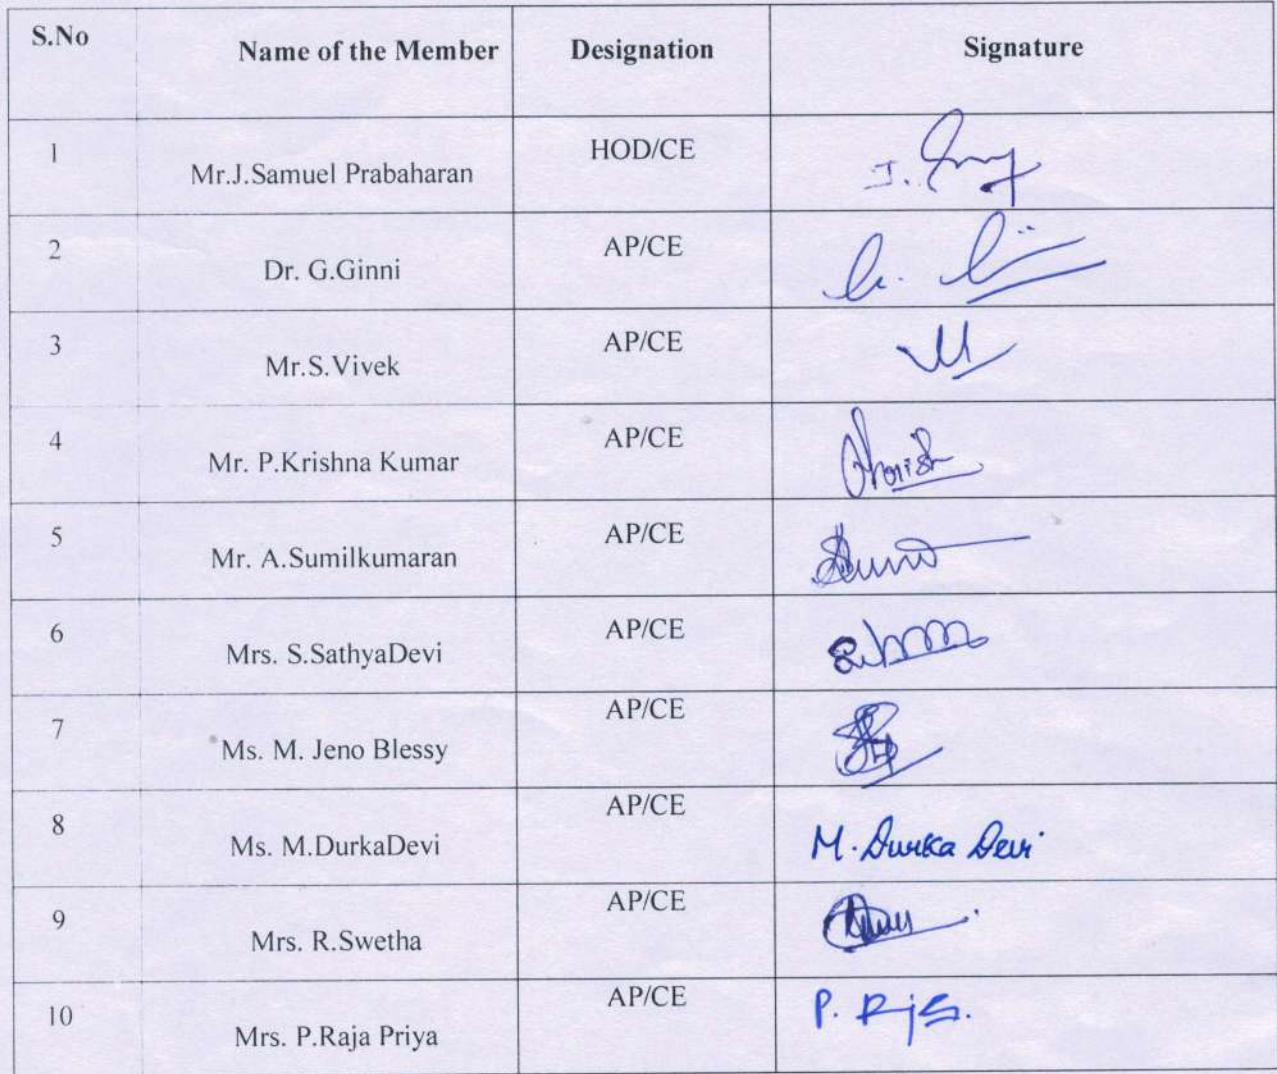 S.No Name of the Member Designation Signature
1 Mr.J.Samuel Prabaharan HOD/CE J.
2 Dr. G.Ginni AP/CE
3 Mr.S.Vivek AP/CE
4 Mr. P.Krishna Kumar AP/CE
5 Mr. A.Sumilkumaran AP/CE
6 Mrs. S.SathyaDevi AP/CE
7 Ms. M. Jeno Blessy AP/CE
8 Ms. M.DurkaDevi AP/CE M. Durka Devi
9 Mrs. R.Swetha AP/CE
10 Mrs. P.Raja Priya AP/CE P.